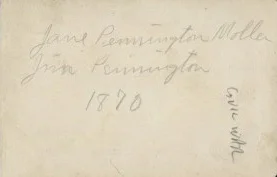 Jane Pennington Moller
Jim Pennington
1870
CIVIL WAR